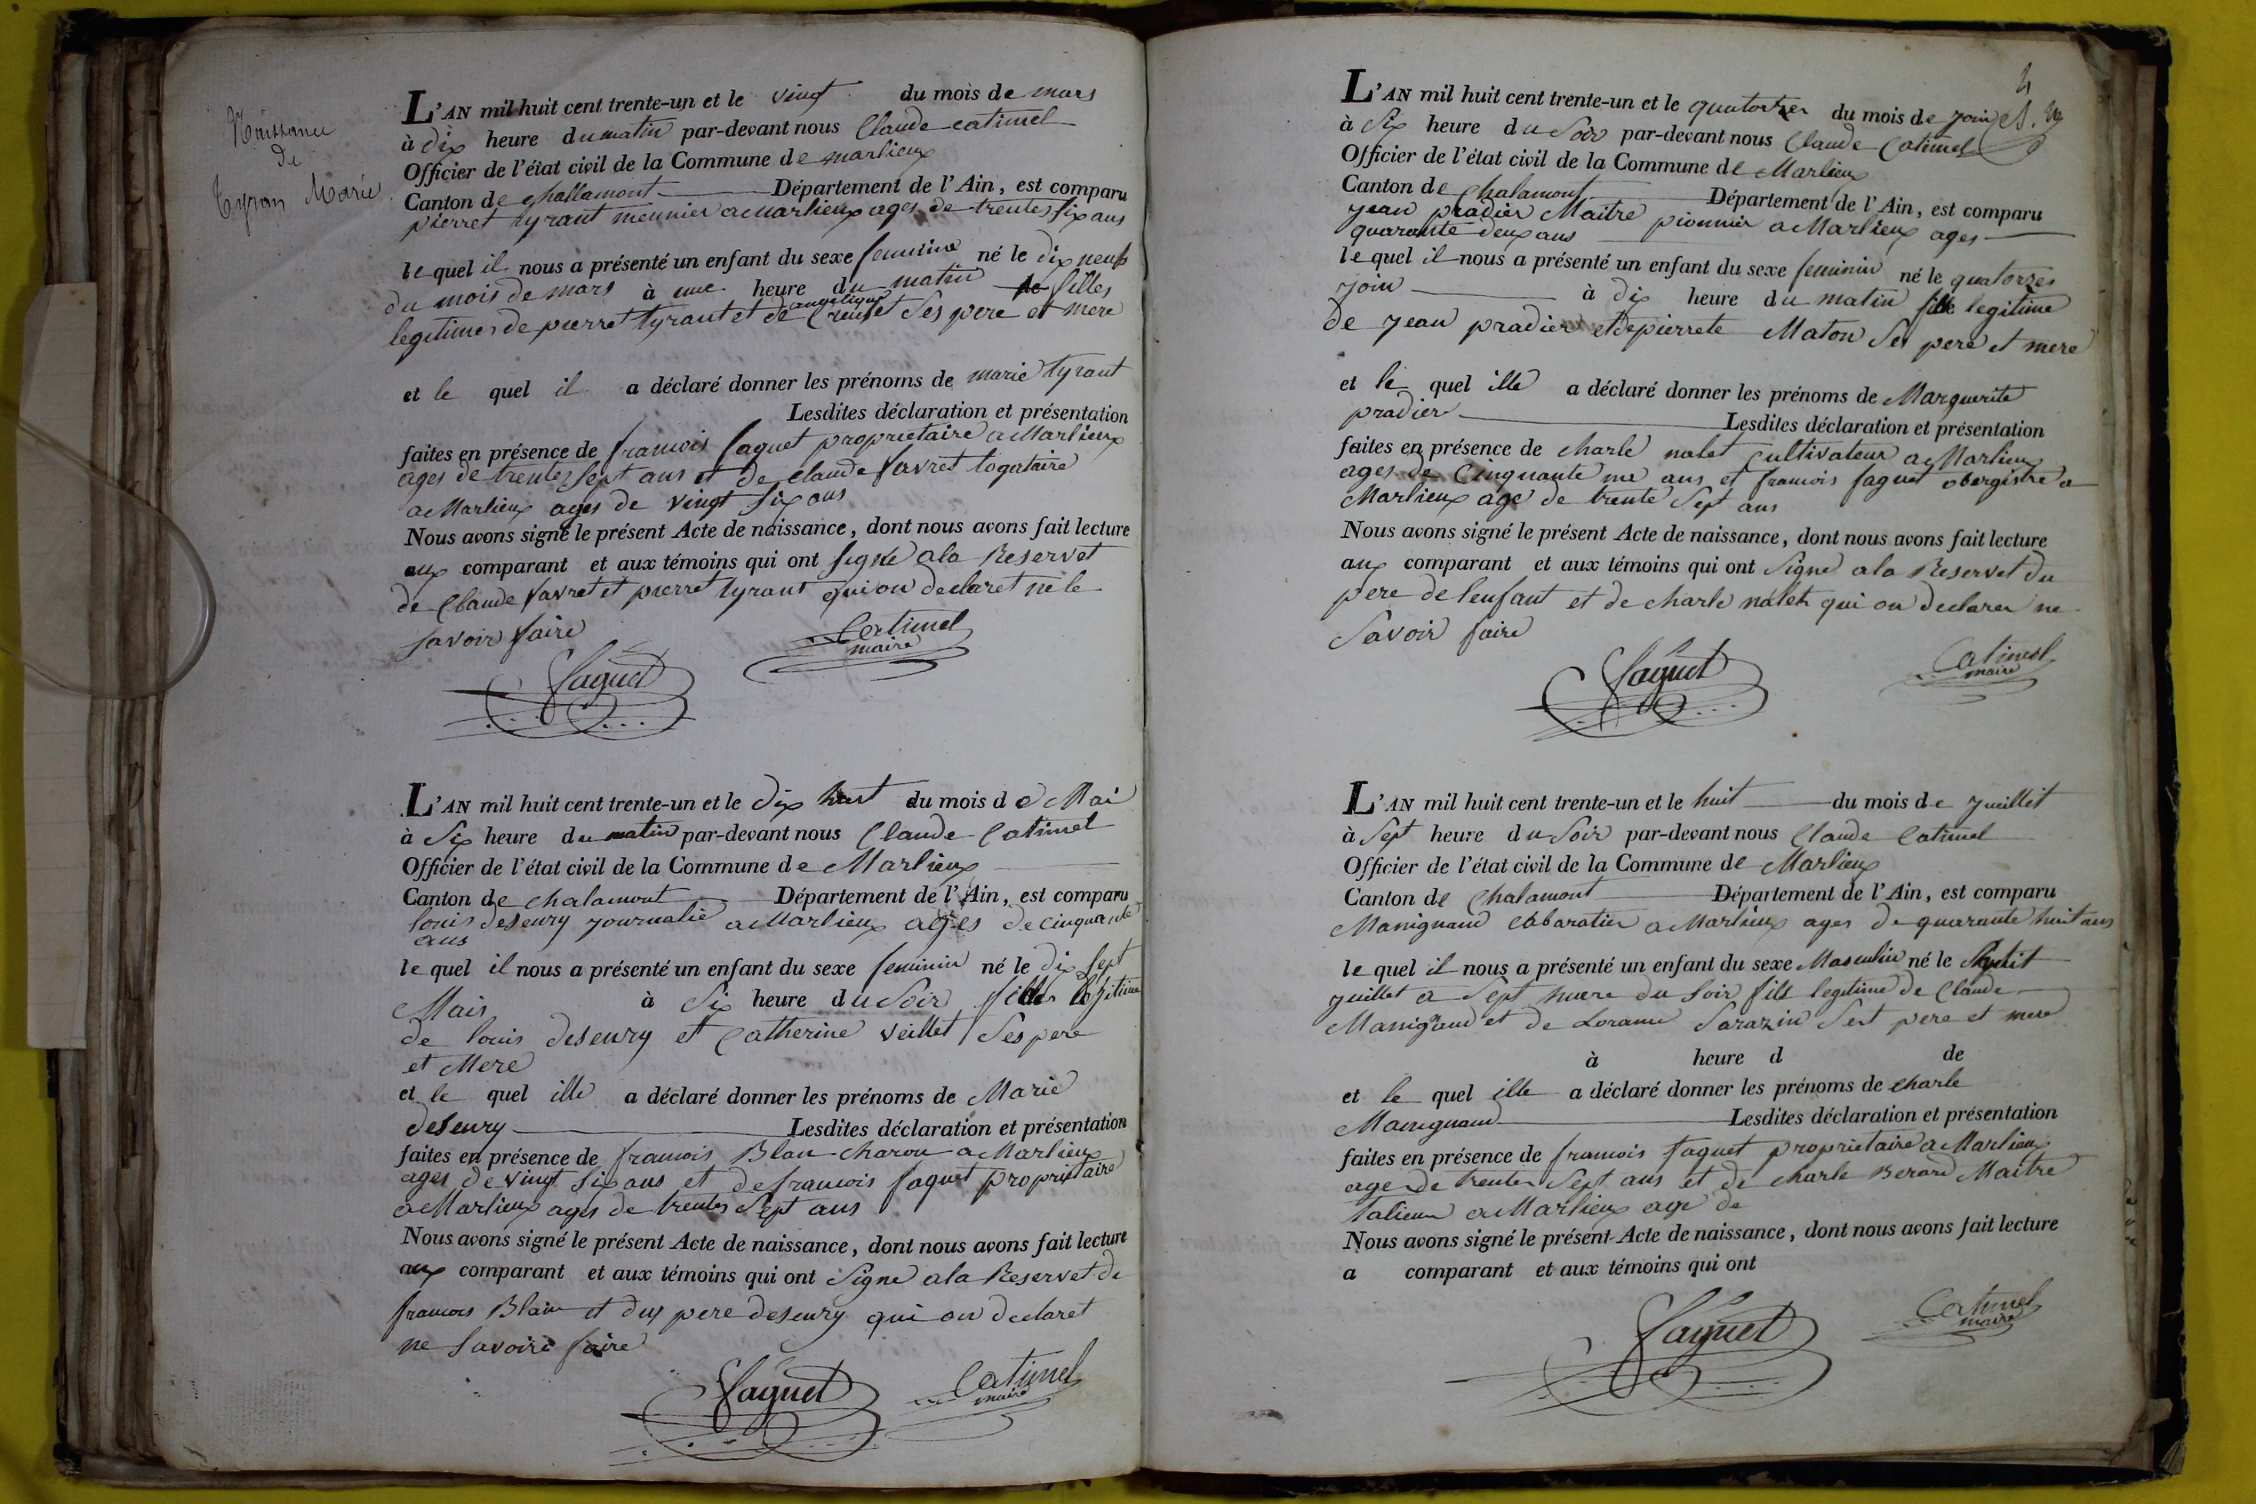 Naissance
de
Tyran Marie
L'AN mil huit cent trente-un et le vingt du mois de mars
à dix heure du matin par-devant nous Claude catimel
Officier de l'état civil de la Commune de marlieux
Canton de challamont Département de l'Ain, est comparu
pierret tyrant meunier a Marlieux ages de trentes six ans
le quel il nous a présenté un enfant du sexe feminine né le dix neuf
du mois de mars à une heure du matin filles
angelique
legitimes de pierret tyrant et de Creuset Ses pere et mere
et le quel il a déclaré donner les prénoms de marie tyrant
Lesdites déclaration et présentation
faites en présence de francois faguet proprietaire a Marlieux
ages de trentes sept ans et de claude favret
a Marlieux ages de vingt six ans
Nous avons signé le présent Acte de naissance, dont nous avons fait lecture
aux comparant et aux témoins qui ont signé a la Reservet
de Claude favret et pierret tyrant qui on declaret ne le
savoir faire
Catimel
maire
faguet
L'AN mil huit cent trente-un et le dix huit du mois de Mai
à Six heure du matin par-devant nous Claude Catimel
Officier de l'état civil de la Commune de Marlieux
Canton de chalamont Département de l'Ain, est comparu
louis deseury journalie a Marlieux ages de cinquante
ans
le quel il nous a présenté un enfant du sexe feminin né le dix sept
Mais à Six heure du Soir filles legitime
de louis deseury et Catherine veillet Ses pere
et Mere
et le quel ille a déclaré donner les prénoms de Marie
deseury Lesdites déclaration et présentation
faites en présence de francois Blan charon a Marlieux
ages de vingt Six ans et de francois faguet proprietaire
a Marlieux ages de trentes Sept ans
Nous avons signé le présent Acte de naissance, dont nous avons fait lecture
aux comparant et aux témoins qui ont Signé a la Reservet de
francois Blain et dux pere deseury qui on declaret
ne Savoire faire
faguet
Catimel
maire
4
L'AN mil huit cent trente-un et le quatorzer du mois de join
à Six heure du Soir par-devant nous Claude Catimel
Officier de l'état civil de la Commune de Marlieux
Canton de Chalamont Département de l'Ain, est comparu
jean pradier Maitre pionnier a Marlieux ages
quarante deux ans
le quel il nous a présenté un enfant du sexe feminin né le quatorzes
join à dix heure du matin fille legitime
de jean pradier et de pierrete Maton Ses pere et mere
et le quel ille a déclaré donner les prénoms de Marguerite
pradier Lesdites déclaration et présentation
faites en présence de charle nalet Cultivateur a Marlieux
ages de Cinquante me ans et francois faguet obergistre a
Marlieux age de trente Sept ans
Nous avons signé le présent Acte de naissance, dont nous avons fait lecture
aux comparant et aux témoins qui ont Signé a la Reservet du
pere de lenfant et de charle nalet qui on declarer ne
Savoir faire
faguet
Catimel
maire
L'AN mil huit cent trente-un et le huit du mois de jueillit
à Sept heure du Soir par-devant nous Claude Catimel
Officier de l'état civil de la Commune de Marlieux
Canton de Chalamont Département de l'Ain, est comparu
Manignand Cabaratier a Marlieux ages de quarante huit ans
le quel il nous a présenté un enfant du sexe Masculin né le
juillet a Sept huere du Soir fils legitime de Claude
Manigand et de Sarazin Sest pere et mere
à heure d de
et le quel ille a déclaré donner les prénoms de charle
Manignand Lesdites déclaration et présentation
faites en présence de francois faguet proprietaire a Marlieux
age de trentes Sept ans et de charle Berard Maitre
talieur a Marlieux age de
Nous avons signé le présent Acte de naissance, dont nous avons fait lecture
a comparant et aux témoins qui ont
faguet
Catimel
maire